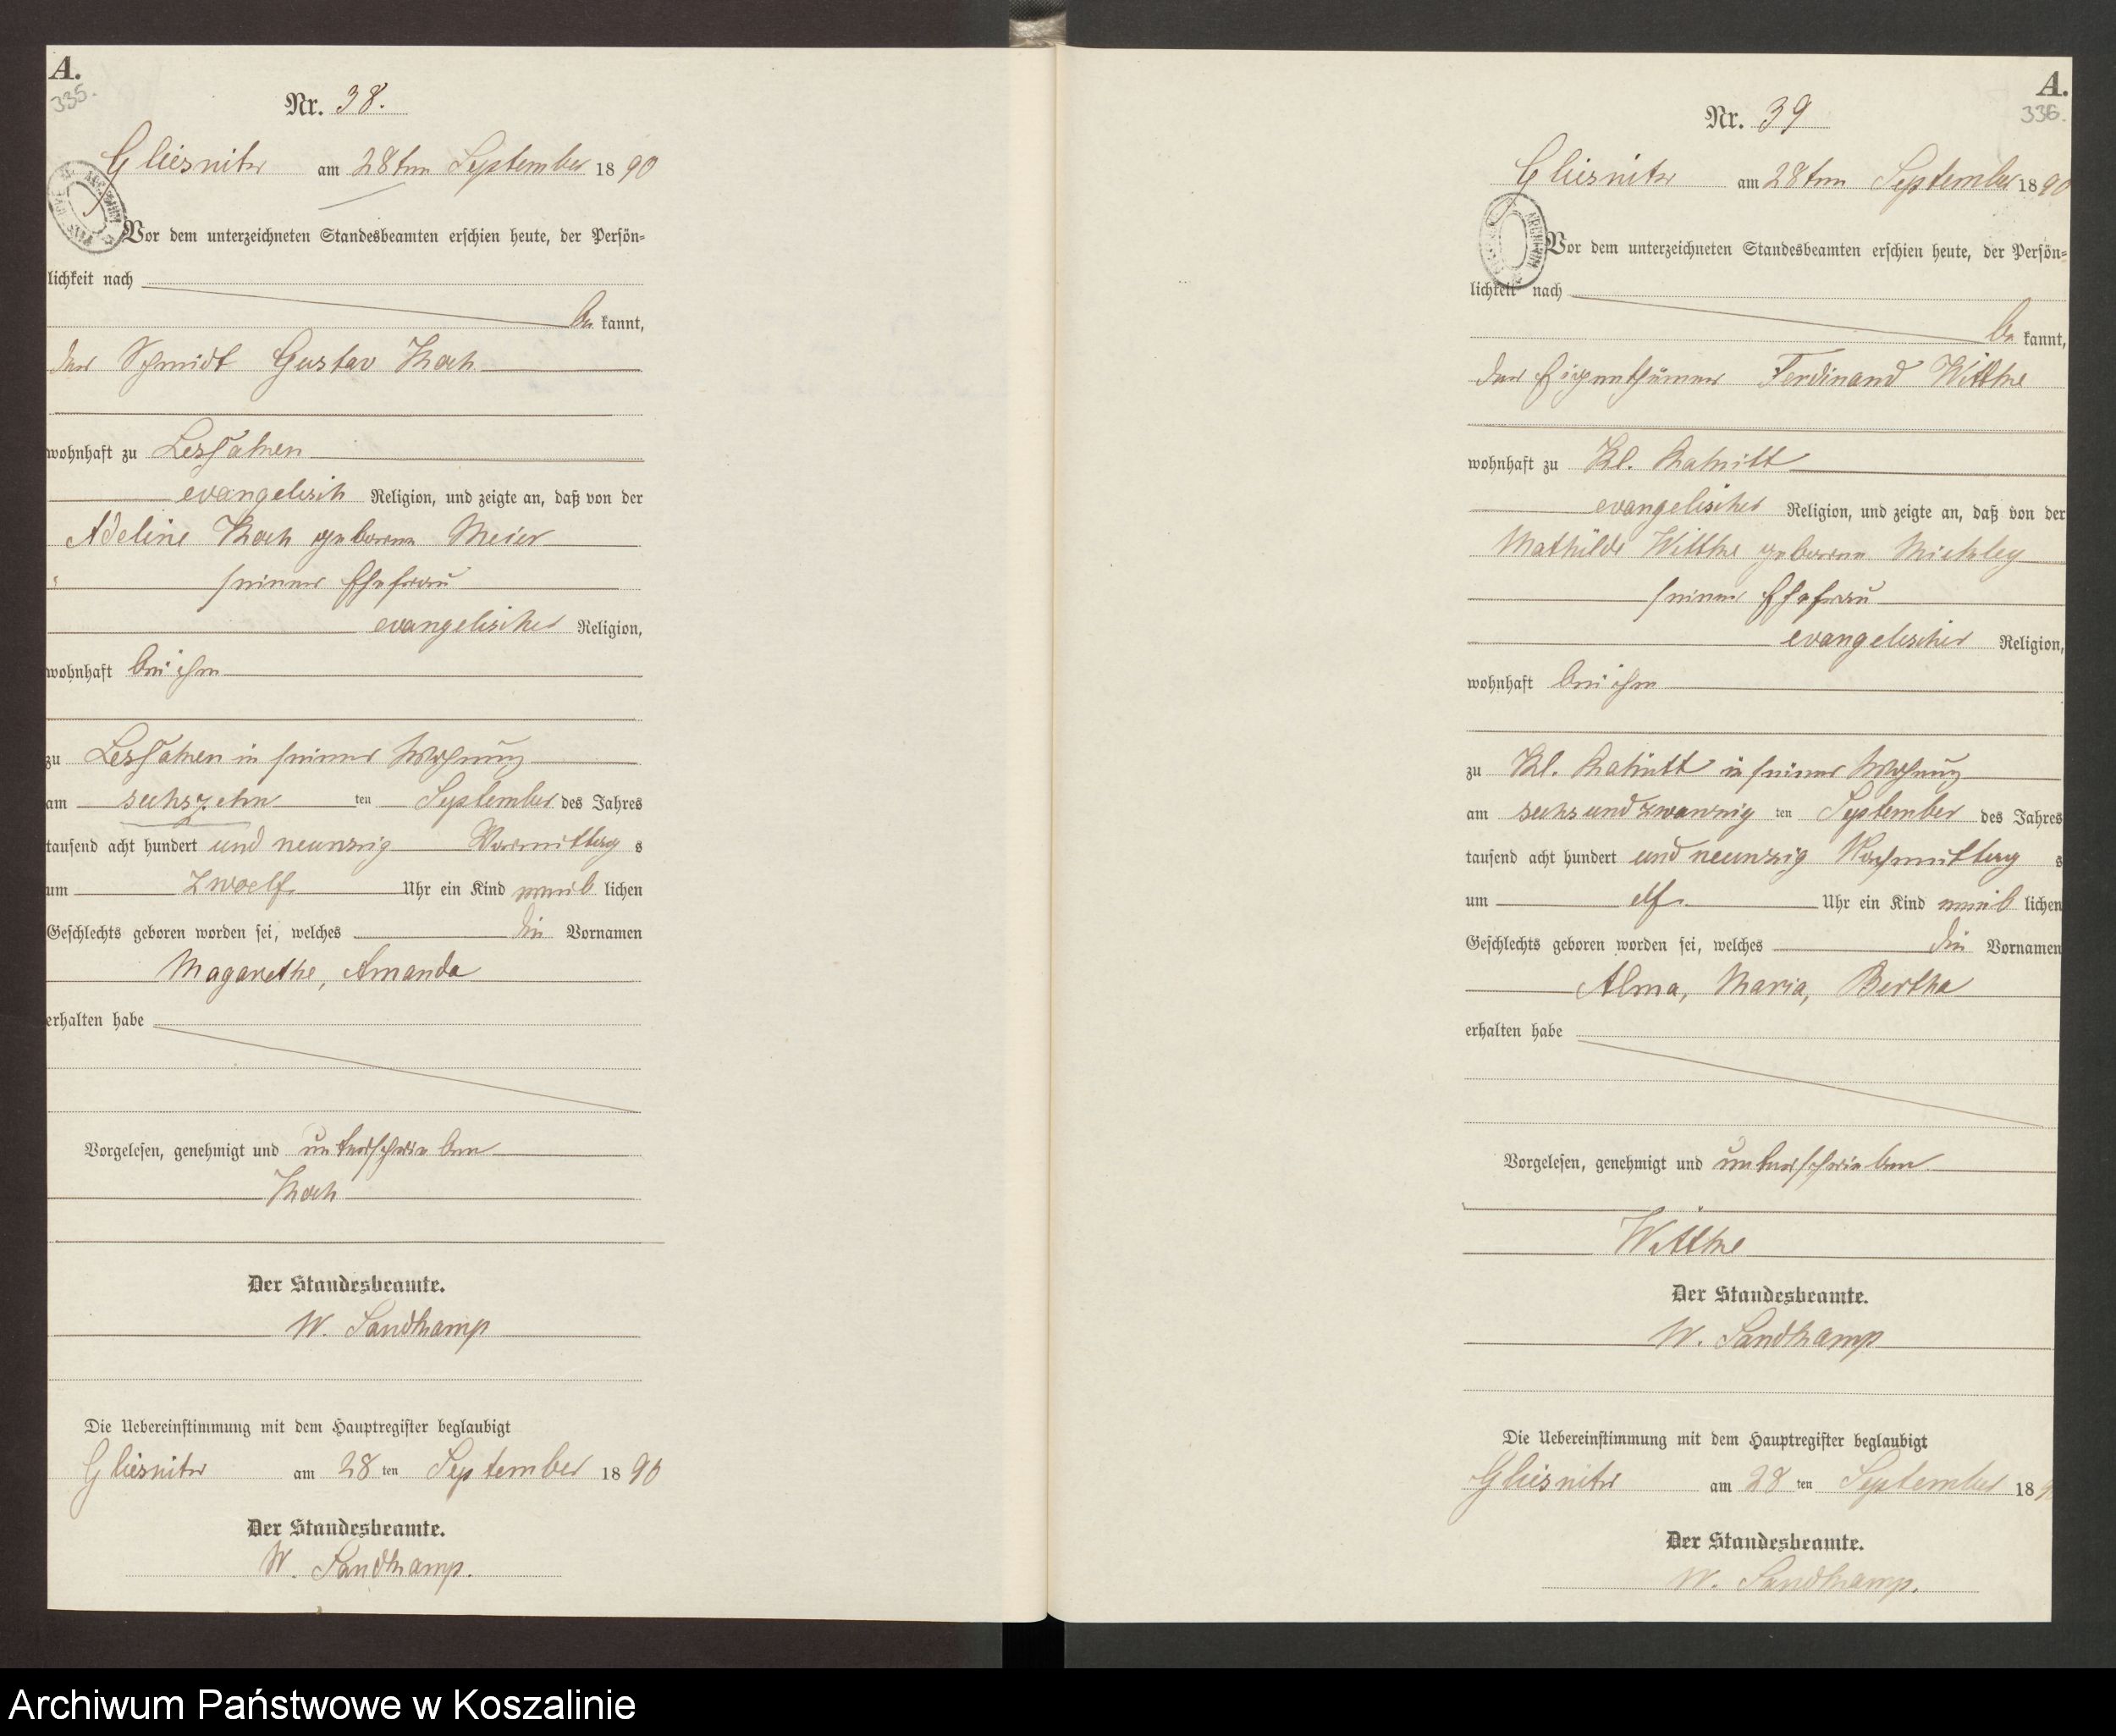 A.
335.
Nr. 38.
Gliesnitz am 28ten September 1890
Vor dem unterzeichneten Standesbeamten erschien heute, der Persön=
lichkeit nach
be kannt,
der Schmidt Gustav Koch
wohnhaft zu Lessaken
evangelisch Religion, und zeigte an, daß von der
Adeline Koch geborene Meier
seiner Ehefrau
evangelischer Religion,
wohnhaft bei ihm
zu Lessaken in seiner Wohnung
am sechszehn ten September des Jahres
tausend acht hundert und neunzig Vormittag s
um zwoelf Uhr ein Kind weib lichen
Geschlechts geboren worden sei, welches die Vornamen
Magarethe, Amanda
erhalten habe
Vorgelesen, genehmigt und unterschrieben
Koch
Der Standesbeamte.
W. Sandkamp
Die Uebereinstimmung mit dem Hauptregister beglaubigt
Gliesnitz am 28 ten September 1890
Der Standesbeamte.
W. Sandkamp.
A.
336.
Nr. 39
Gliesnitz am 28ten September 1890
Vor dem unterzeichneten Standesbeamten erschien heute, der Persön=
lichkeit nach
be kannt,
der Eigenthümer Ferdinand Witthe
wohnhaft zu Kl.
evangelischer Religion, und zeigte an, daß von der
Mathilde Witthe geborene Michley
seiner Ehefrau
evangelischer Religion,
wohnhaft bei ihm
zu Kl. in seiner Wohnung
am sechsundzwanzig ten September des Jahres
tausend acht hundert und neunzig Nachmittag s
um elf Uhr ein Kind weib lichen
Geschlechts geboren worden sei, welches die Vornamen
Alma, Maria, Bertha
erhalten habe
Vorgelesen, genehmigt und unterschrieben
Witthe
Der Standesbeamte.
W. Sandkamp
Die Uebereinstimmung mit dem Hauptregister beglaubigt
Gliesnitz am 28 ten September 189
Der Standesbeamte.
W. Sandkamp.
Archiwum Państwowe w Koszalinie